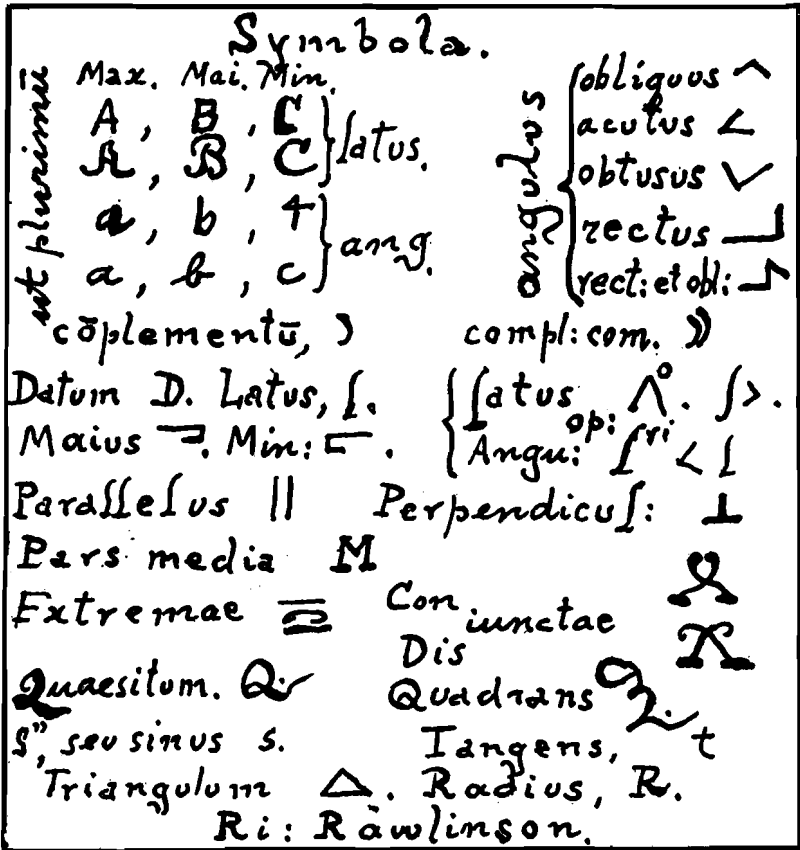 Symbola.
ut plurimū
Max. Mai. Min.
A, B, C
A, B, C } latus.
a, b, c
a, b, c } ang.
angulus
obliquus ^
acutus ∠
obtusus ∨
rectus ⏌
rect: et obl:
cōplementū, )
compl: com. ))
Datum D. Latus, ʃ.
Maius ⫎. Min: ⫍.
latus op: Λ°. ʃ>.
Angu: ʃri < ʃ
Parallelus ||
Perpendicul: ⊥
Pars media M
Extremae
Coniunctae
Dis
Quaesitum. Q.
Quadrans Q.
s", seu sinus s.
Tangens, t
Triangulum △. Radius, R.
Ri: Rawlinson.